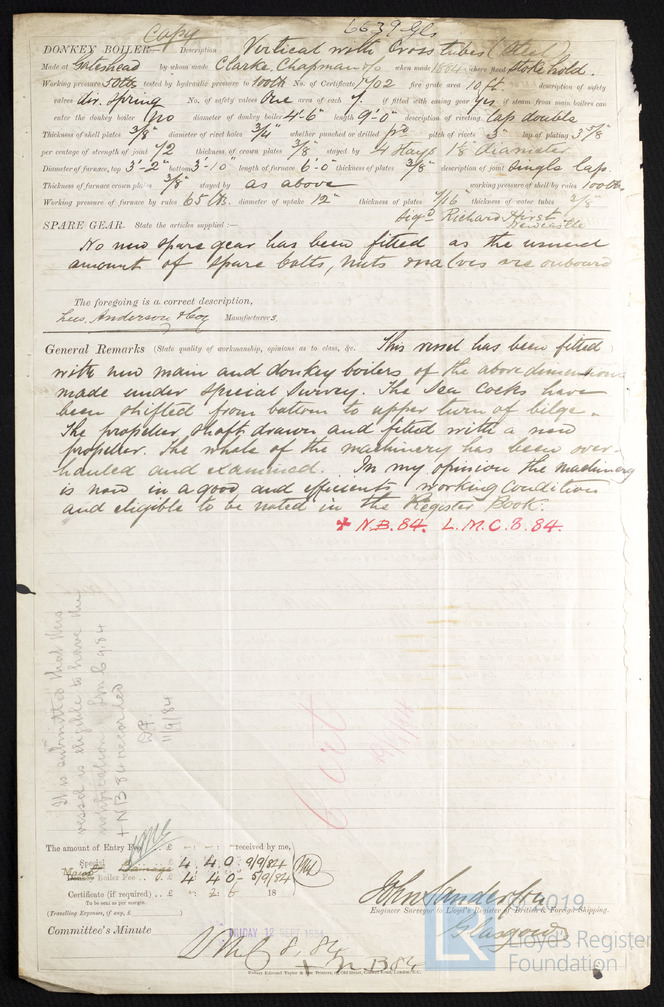 Copy
6639 Gls
DONKEY BOILER— Description Vertical with Cross tubes (Steel)
Made at Gateshead by whom made Clarke, Chapman & Co when made 1884 where fixed Stoke hold.
Working pressure 50 lbs tested by hydraulic pressure to 100 lbs No. of Certificate 1702 fire grate area 10 ft. description of safety
valves dir. Spring No. of safety valves One area of each 7. if fitted with easing gear yes if steam from main boilers can
enter the donkey boiler No diameter of donkey boiler 4-6" length 9'-0" description of riveting lap double
Thickness of shell plates 3/8" diameter of rivet holes 3/4" whether punched or drilled pd pitch of rivets 3" lap of plating 3 5/8"
per centage of strength of joint 72 thickness of crown plates 3/8" stayed by 4 Stays 1 1/8 diameter
Diameter of furnace, top 3'-2" bottom 3'-10" length of furnace 6'-0" thickness of plates 3/8" description of joint Single lap.
Thickness of furnace crown plates 3/8" stayed by as above working pressure of shell by rules 100 lbs.
Working pressure of furnace by rules 65 lbs. diameter of uptake 12" thickness of plates 7/16 thickness of water tubes 3/8"
sigd Richard Hirst
Newcastle
SPARE GEAR. State the articles supplied:—
No new spare gear has been fitted as the usual
amount of spare bolts, nuts valves are onboard
The foregoing is a correct description,
Lees. Anderson & Coy Manufacturers.
General Remarks (State quality of workmanship, opinions as to class, &c. This vessel has been fitted
with new main and donkey boilers of the above dimensions
made under special survey. The Sea Cocks have
been shifted from bottom to upper turn of bilge.
The propeller shaft drawn and fitted with a new
propeller. The whole of the machinery has been over-
hauled and examined. In my opinion the machinery
is now in a good and efficient working condition
and eligible to be noted in the Register Book.
+ N.B. 84. L.M.C. 8. 84.
It is submitted that this
vessel is eligible to have the
notification LMC 8.84
+ NB 84 recorded
11/9/84
Cert
The amount of Entry Fee .. £ : : received by me,
Special .. £ 4. 4. 0 9/9/84
Donkey Boiler Fee .. £ 4 4. 0 5/9/84
Certificate (if required) .. £ - 2. 6 18
To be sent as per margin.
(Travelling Expenses, if any, £ )
John Sanderson
Engineer Surveyor to Lloyd's Register of British & Foreign Shipping.
Glasgow
Committee's Minute
FRIDAY 12 SEPT 1884
LMC 8.84
+ NB 84
© 2019
LR
Lloyd's Register
Foundation